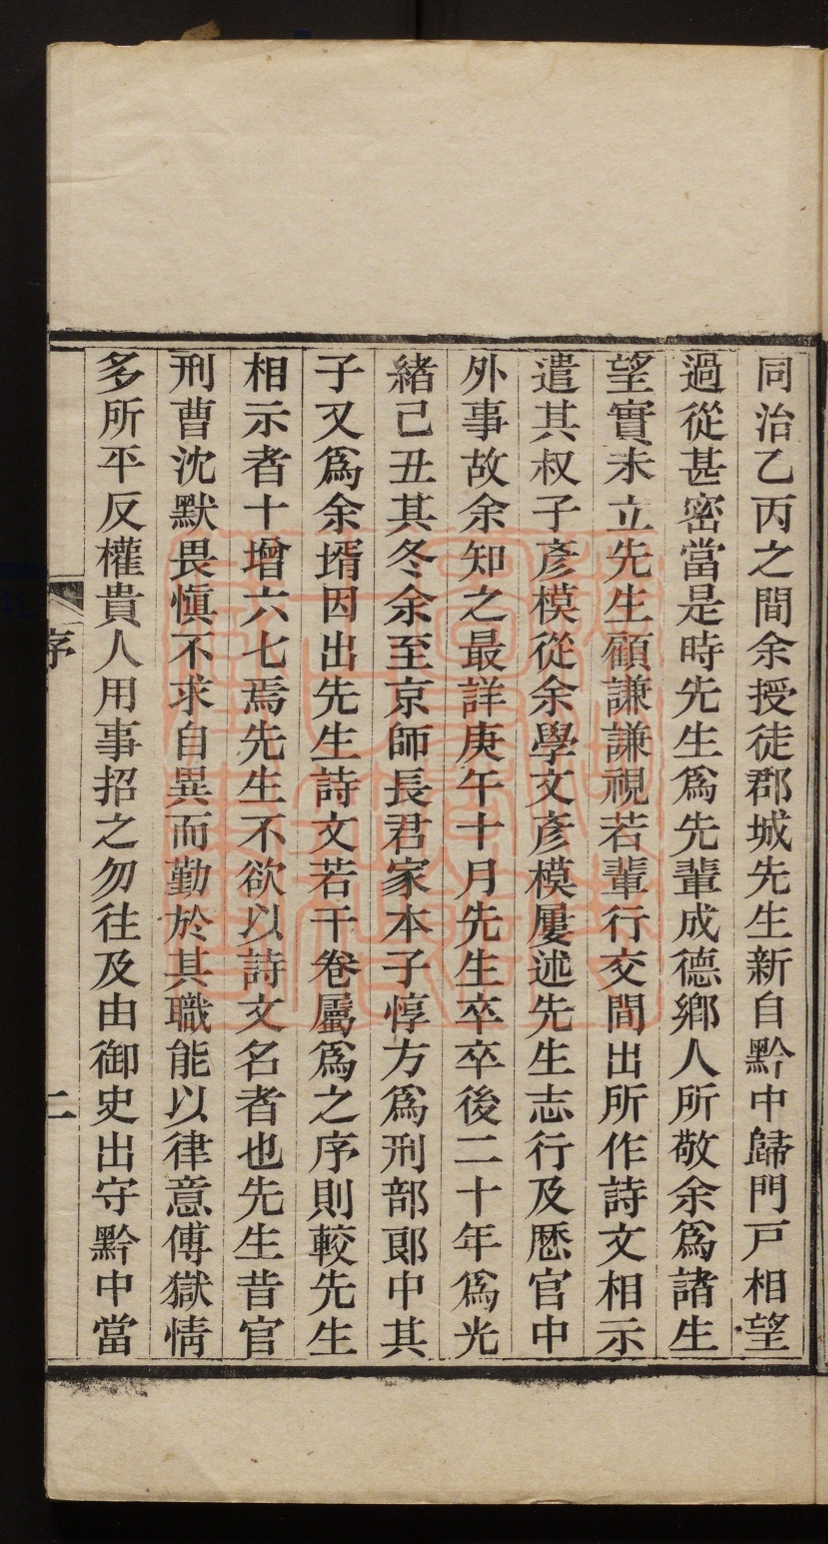 同治乙丙之間余授徒郡城先生新自黔中歸門戸相望
過從甚密當是時先生爲先輩成德鄉人所敬余爲諸生
望實未立先生顧謙謙視若輩行交間出所作詩文相示
遣其叔子彥模從余學文彥模屢述先生志行及歷官中
外事故余知之最詳庚午十月先生卒卒後二十年爲光
緒己丑其冬余至京師長君家本子惇方爲刑部郎中其
子又爲余壻因出先生詩文若干卷屬爲之序則較先生
相示者十增六七焉先生不欲以詩文名者也先生昔官
刑曹沈默畏愼不求自異而勤於其職能以律意傅獄情
多所平反權貴人用事招之勿往及由御史出守黔中當
序
二